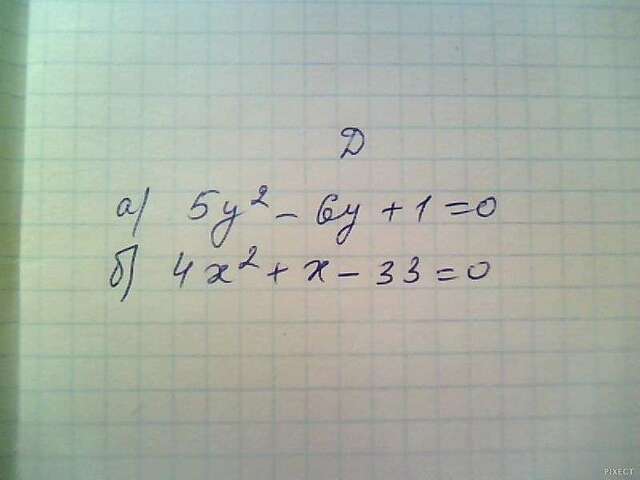 Д
а) 5y² - 6y + 1 = 0
б) 4x² + x - 33 = 0
PIXECT